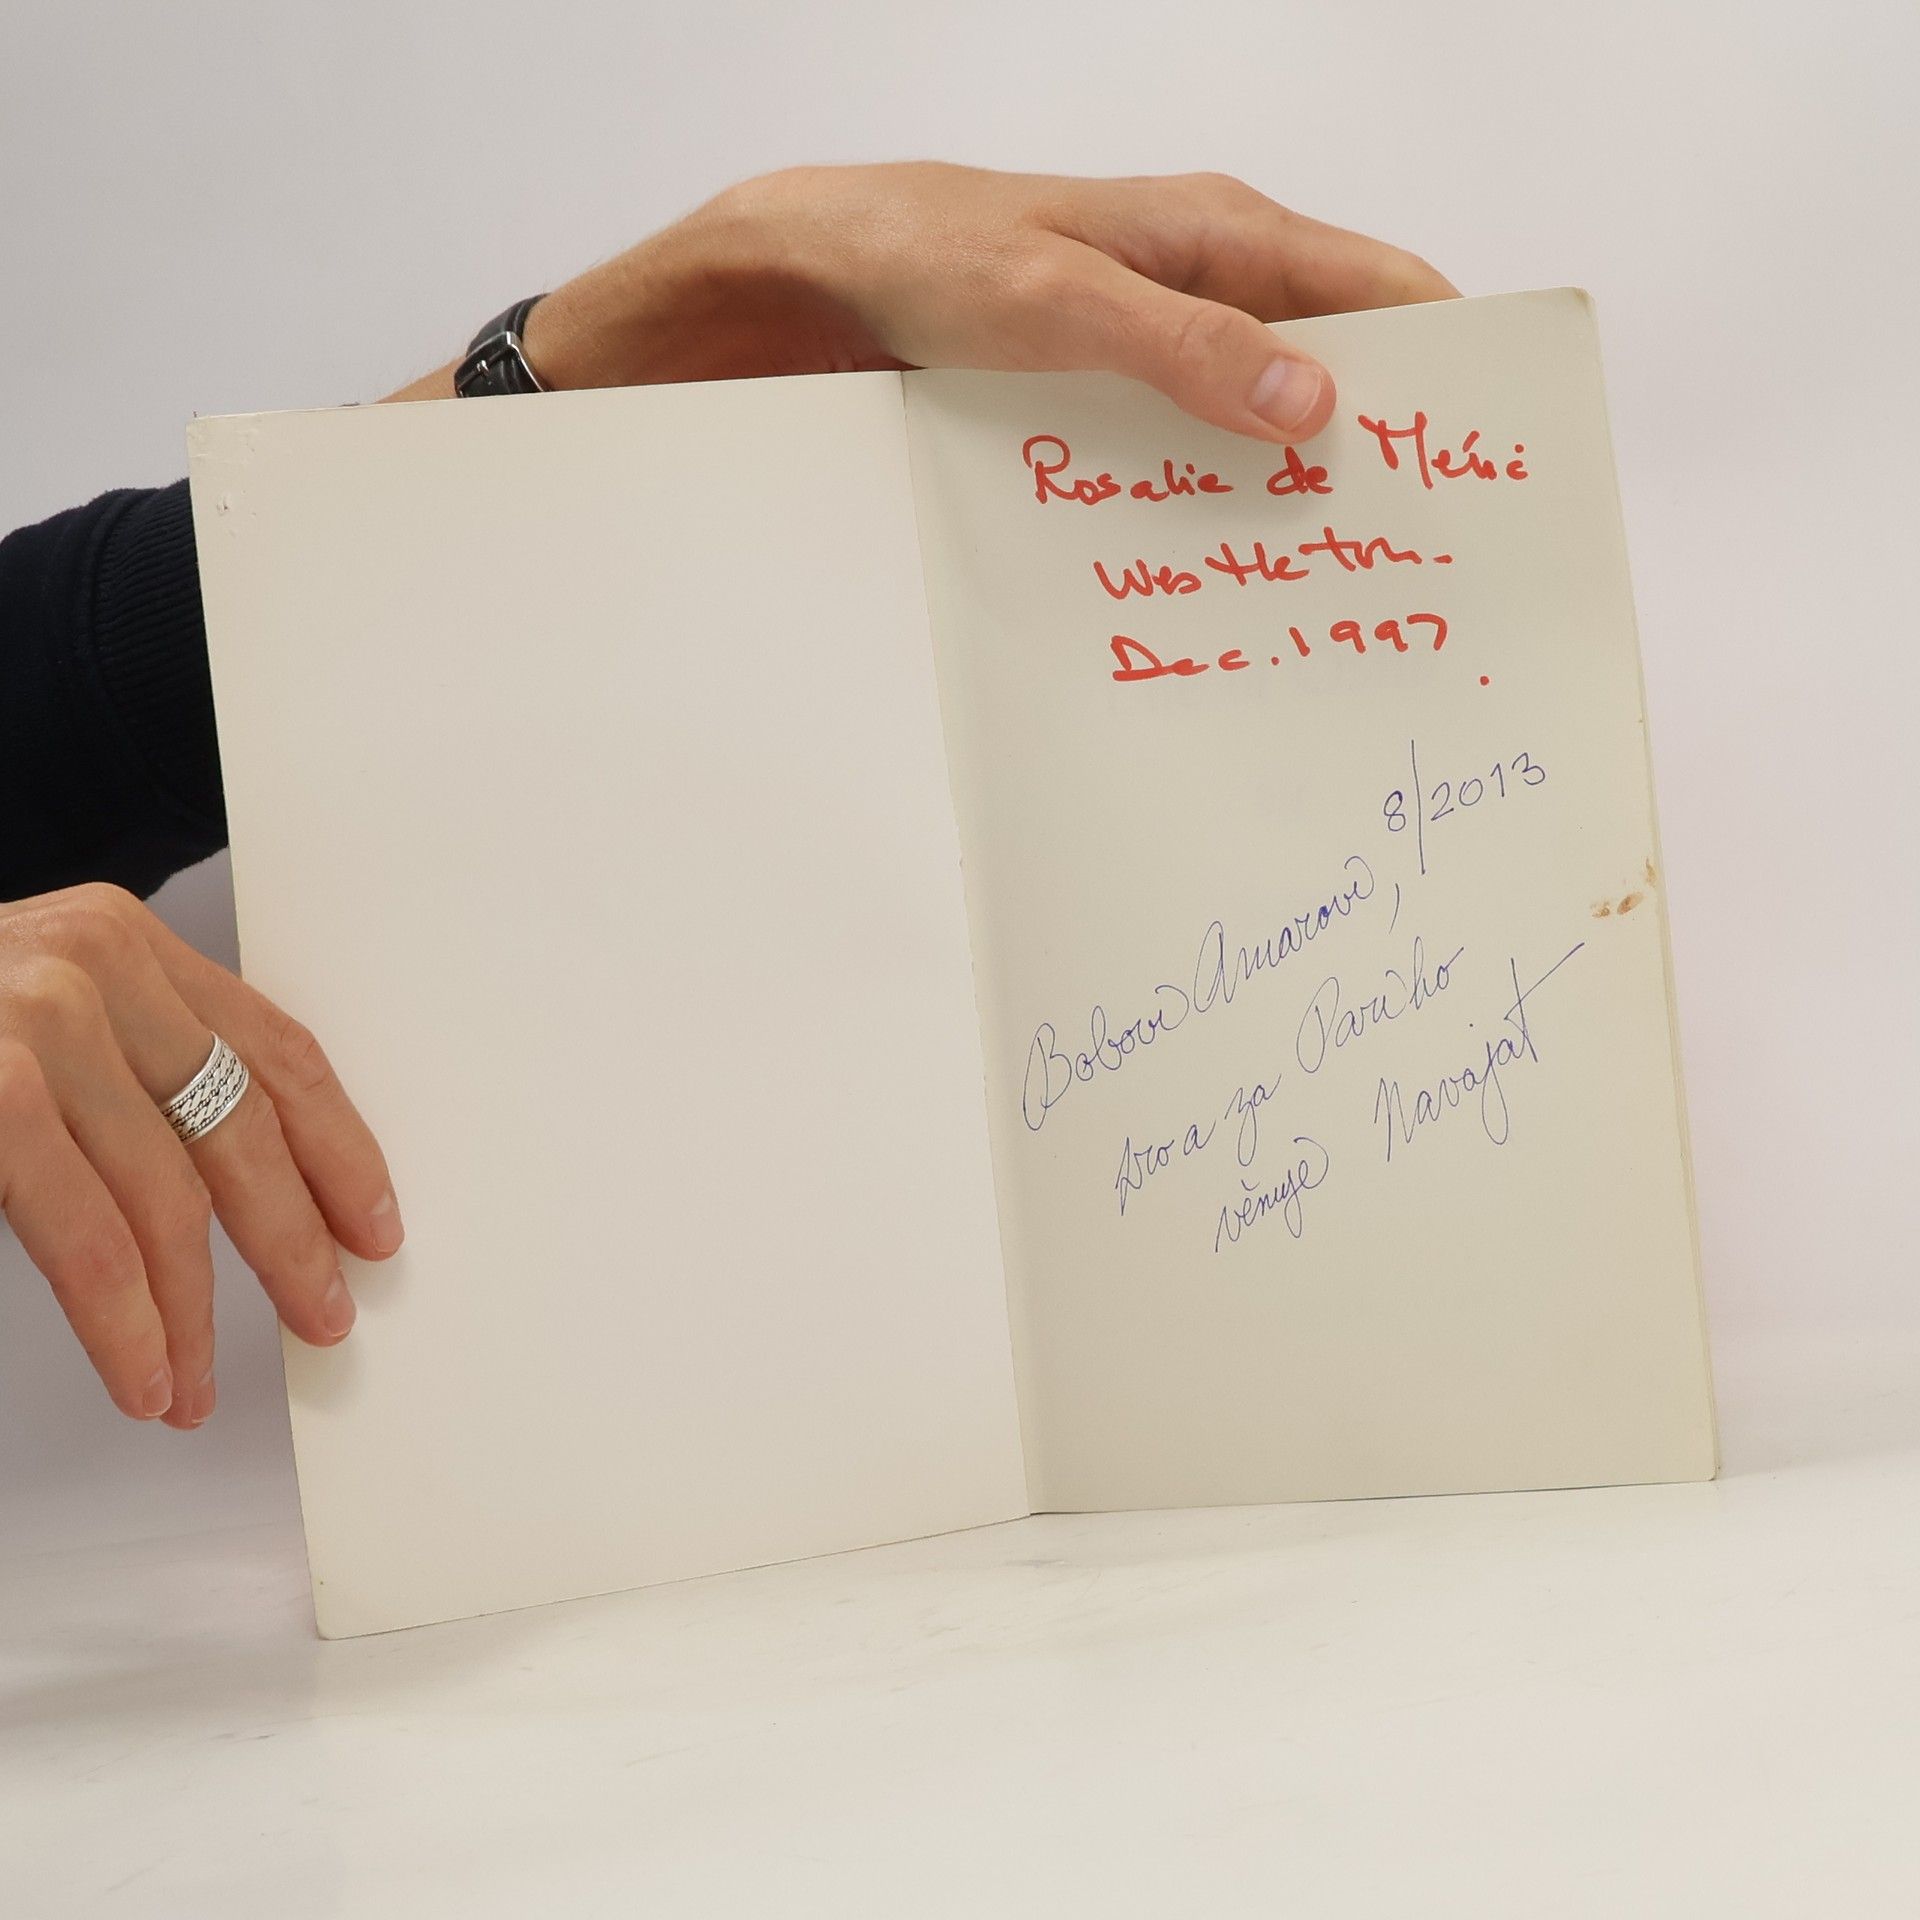 Rosalie de Méric
Westleton.
Dec. 1997.
8/2013
Bobovi Amarovi,
za
věnuje Navajat